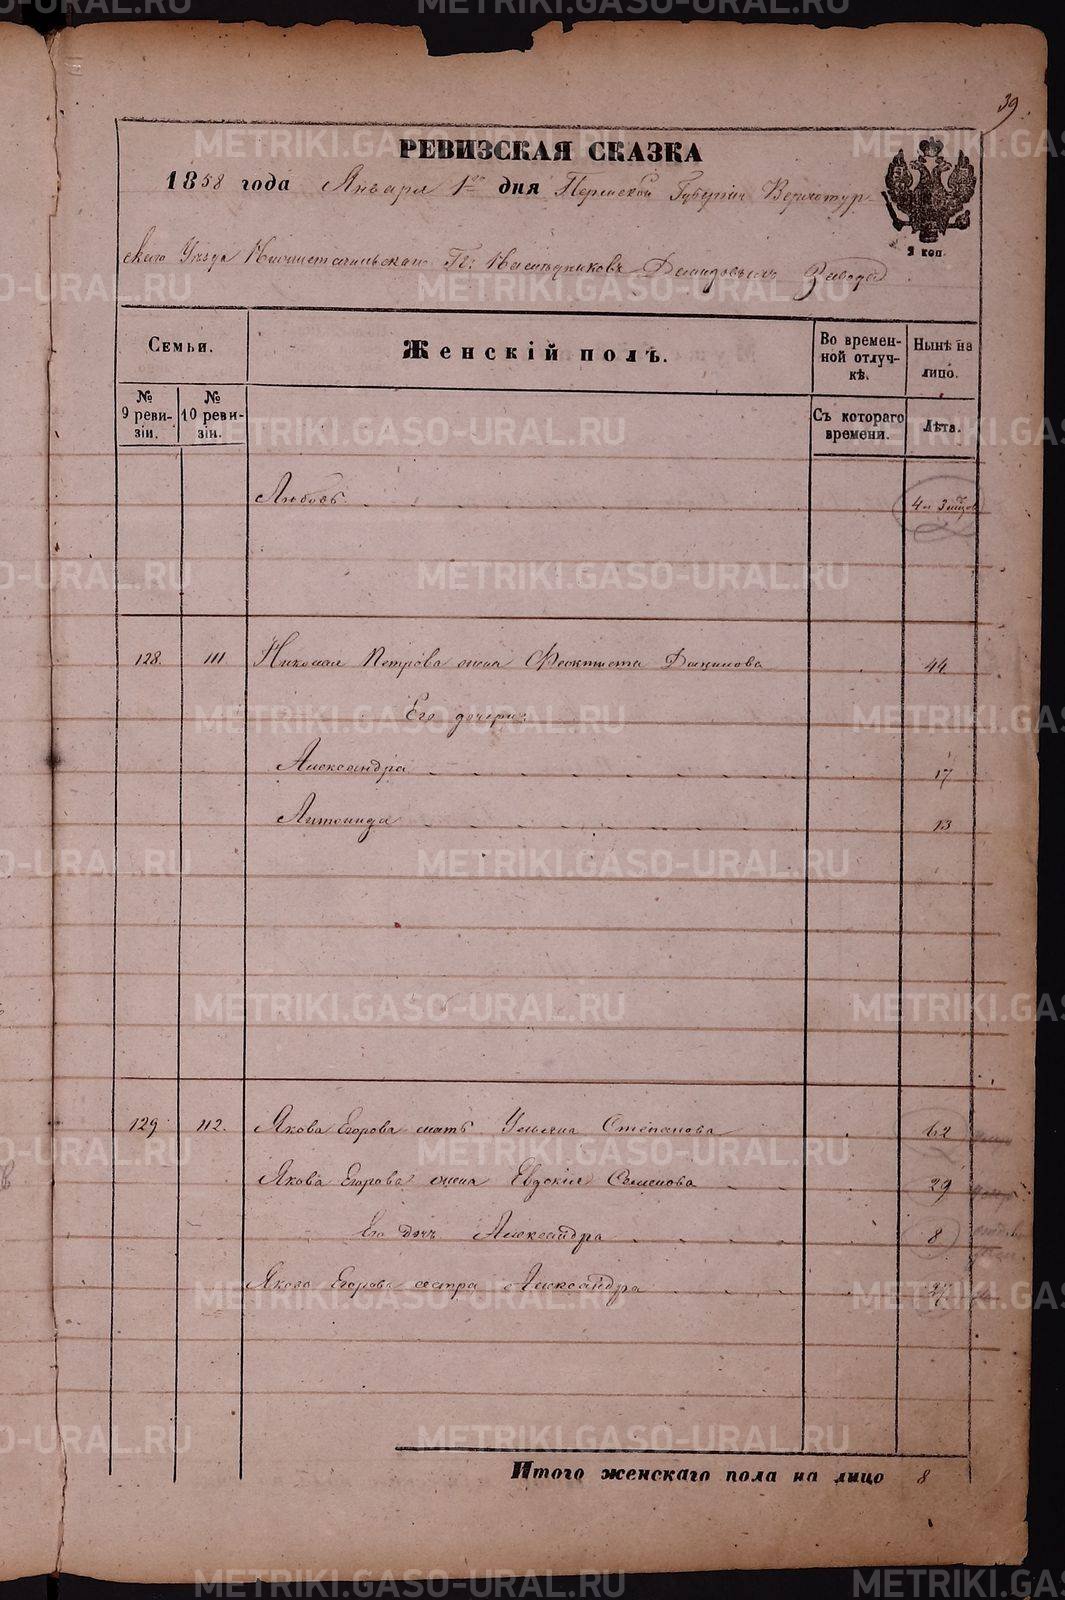 39
РЕВИЗСКАЯ СКАЗКА
1858 года Января 1го дня Пермской Губерніи Верхотур-
скаго Уѣзда Нижнетагильскаго Гг: Наслѣдниковъ Демидовыхъ Завода
2 коп.
Семьи.
Женскій полъ.
Во времен-
ной отлуч-
кѣ.
Нынѣ на
лицо.
№
9 реви-
зіи.
№
10 реви-
зіи.
Съ котораго
времени.
Лѣта.
Любовь 4 и 3 мѣсяц
128. 111 Николая Петрова жена Феоктиста 44
Его дочери:
Александра 17
Антонида 13
129 112. Якова Егорова мать Ульяна Степанова 62
Якова Егорова жена Евдокія Семенова 29
Его дочь Александра 8
Якова Егорова сестра Александра 27
Итого женскаго пола на лицо 8
METRIKI.GASO-URAL.RU